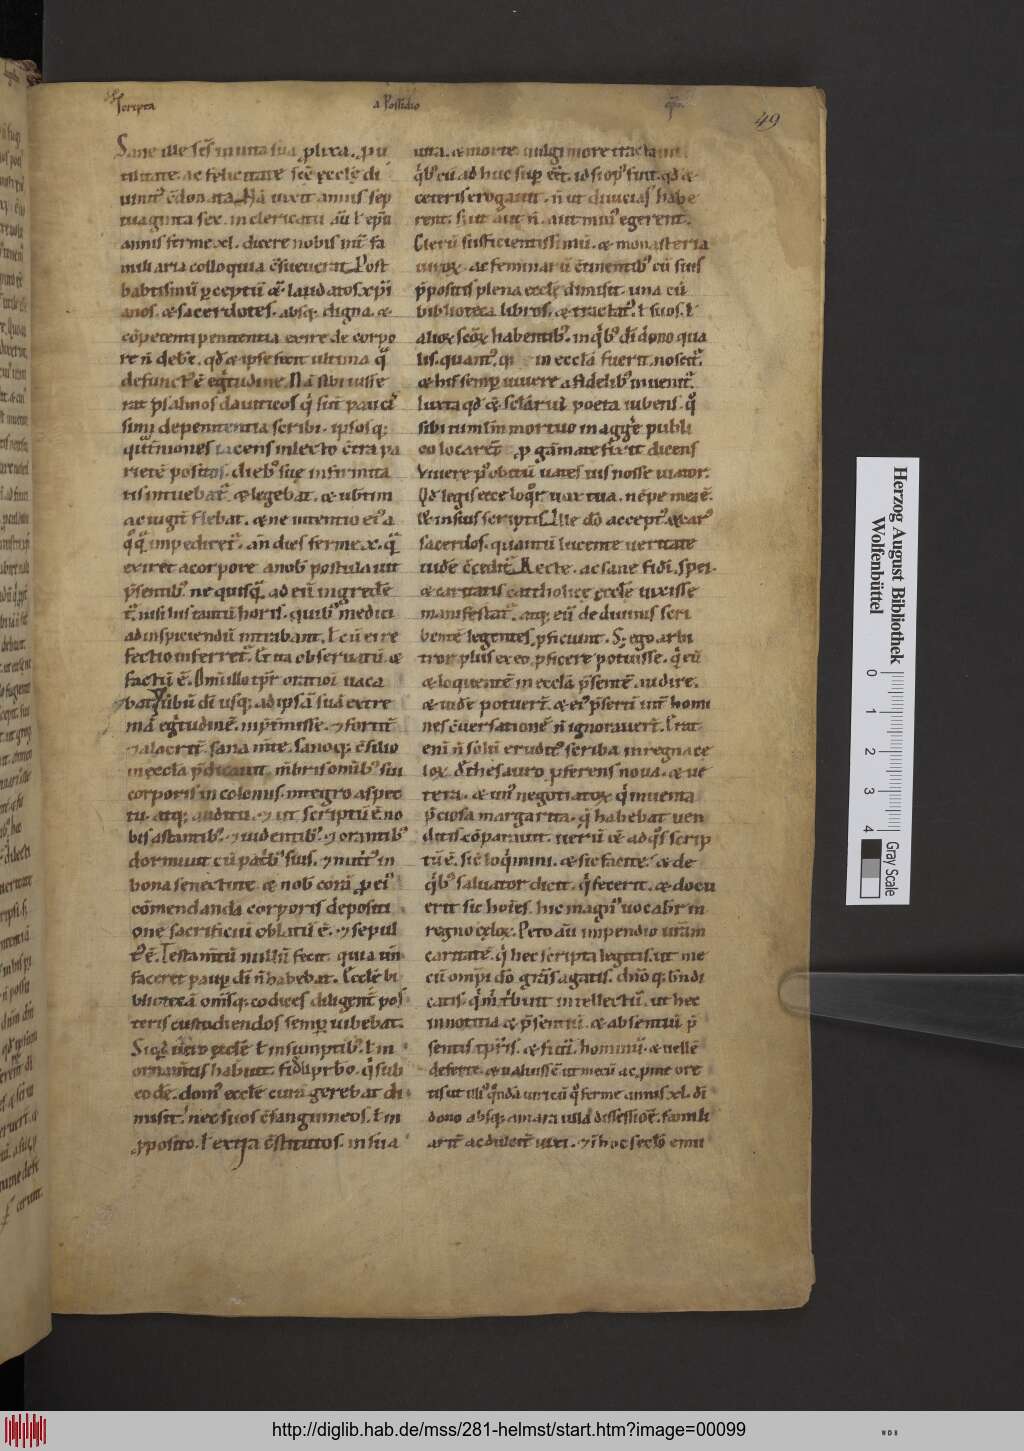 Scripta a Possidio
49
Sane ille sc̄s in uita sua ꝓlixa. ꝓ u
tilitate ac felicitate scē ęcclę di
uinit᷒ c̄donata. Nā uixit annis sep
tuaginta sex. in clericatu aū ł ep̄u
annis ferme xl. dicere nobis int̄ fa
miliaria colloquia c̄sueuerat. Post
babtismū ꝑceptū &̄ laudatos xp̄i
anos. & sacerdotes. absq; digna. &
cōpetenti penitentia exire de corpo
re n̄ deb̄e. qd̄ & ipse fecit ultima q̄
defunct᷒ ē eg̓tudine. Nā sibi iusse
rat psalmos dauiticos q̓ sūt pauci
simi de penitentia scribi. ipsosq;
q̄t̄niones iacens in lecto c̄tra pa
rietē positos. dieb᷒ suę infirmita
tis intuebat̄. & legebat. & ubtim
ac iugit̄ flebat. & ne intentio ei᷒ a
q̊q̄ impediret̄. an̄ dies ferme .x. q̄
exiret a corpore a nob̄ postulauit
p̄sentib᷒. ne quisq̄ ad eū ingrederē
t᷒. nisi his tantū horis. quib᷒ medici
ad inspiciendū intrabant. ł cū ei re
fectio inferret̄. Et ita obseruatū. &
factū ē. Om̄i illo tp̄r orationi uaca
bat. Ūbū dī usq; ad ipsā suā extre
mā eg̓tudinē. inp̄t̄misse. ⁊ fortit̄
⁊ alacrit̄. sana m̄te. sanoq; c̄silio
in ęccła p̄dicauit. m̄bris om̄ib᷒ sui
corporis incolomis. integro aspec
tu. atq; auditu. ⁊ ut scriptū ē. no
bis astantib᷒. ⁊ uidentib᷒. ⁊ orantib᷒
dormiuit cū patrib᷒ suis. ⁊ nutt᷒ in
bona senectute & nob̄ corā ꝓ ei᷒
cōmendanda corporis depositi
one sacrificiū oblatū ē. ⁊ sepul
t᷒ ē. Testam̄tū nullū fecit. quia un̄
faceret paup̲ dī n̄ habebat. Ęcclę bi
bliotecā om̄sq; codices diligent̄ pos
teris custodiendos semꝑ iubebat.
Siqd̄ uero ęcclę ł in sumptib᷒. ł in
ornam̄tis habuit. fidū prb̄o. q̓ sub
eodē. dom᷒ ecclę curā gerebat di
misit. nec suos c̄sanguineos. ł in
ꝓposito. ł extra c̄stitutos. in sua
uita. & morte uulgi more tractauit.
q̓b᷒ cū adhuc suꝑ eēt. id si op᷒ fuit. qd̄ &
ceteris erogauit. n̄ ut diuicias habe
rent. s; ut aut n̄. aut min᷒ egerent.
Clerū sufficientissimū. & monasteria
uiroꝝ. ac feminarū c̄tinentib᷒ cū suis
p̄positis plena ecclę dimisit. una cū
biblioteca libros. & tractat᷒. ł suos. ł
alioꝝ sc̄oꝝ habentib᷒. in q̓b᷒ dī dono qua
lis. quant᷒. q; in ecclā fuerit. noscit̄.
& his semꝑ uiuere a fidelib᷒ inuenit̄.
Iuxta qd̄ &̄ sclāriū poeta iubens. q̊
sibi tumłm mortuo in aggere publi
co locarēt. ꝓ gāmate fixit dicens
Viuere p᷒ obitū uates uis nosse uiator.
Qd̄ legis ecce loq̊r uox tua. nēpe mea ē.
Ille dō accept᷒. & car᷒
sacerdos. quantū lucente ueritate
uidē c̄cedit̄. Recte. ac sane fidī. spei.
& caritatis catholicę ęcclę uixisse
manifestat̄. atq; eū de diuinis scri
bentē legentes ꝓficiunt. S; ego arbi
tror plus ex eo ꝓficere potuisse. q̓ eū
& loquentē in ecclā p̄sentē audire.
& uidē potuert̄. & ei᷒ p̄serti int̄ homi
nes c̄uersationē n̄ ignorauert̄. Erat
enī n̄ solū erudit᷒ scriba in regna ce
loꝝ. d̄ thesauro ꝓferens noua. & ue
tera. & un᷒ negotiatoꝝ q̓ inuenta
p̄ciosa margarita. q̄ habebat uen
ditis cōparauit. uerū &̄ ad q̊s scrip
tū ē. sic loq̓mini. & sic facite. & de
q̓b᷒ saluator dicit. q̓ fecerit. & docu
erit sic hoīes. hic magn᷒ uocabit̄ in
regno cęloꝝ. Peto aū impendio urām
caritatē. q̓ hec scripta legitis. ut me
cū om̄pi dō grās agatis. dn̄oq; bn̄di
catis. q̓ m̓ tribuit intellectū. ut hec
in notitiā & p̄sentiū. & absentiū p̄
sentis tp̄ris. & futuri hominū. & uellē
deferre. & ualuissē ut mecū ac ꝓ me ore
tis ut illi᷒ q̄ndā uiri cū q̊ ferme annis .xl. dī
dono absq; amara ulla dissensiōe. famili
arit̄ ac dulcit̄ uixi. ⁊ ī hoc sęclo emu
Herzog August Bibliothek
Wolfenbüttel
0
1
2
3
4
Gray Scale
http://diglib.hab.de/mss/281-helmst/start.htm?image=00099